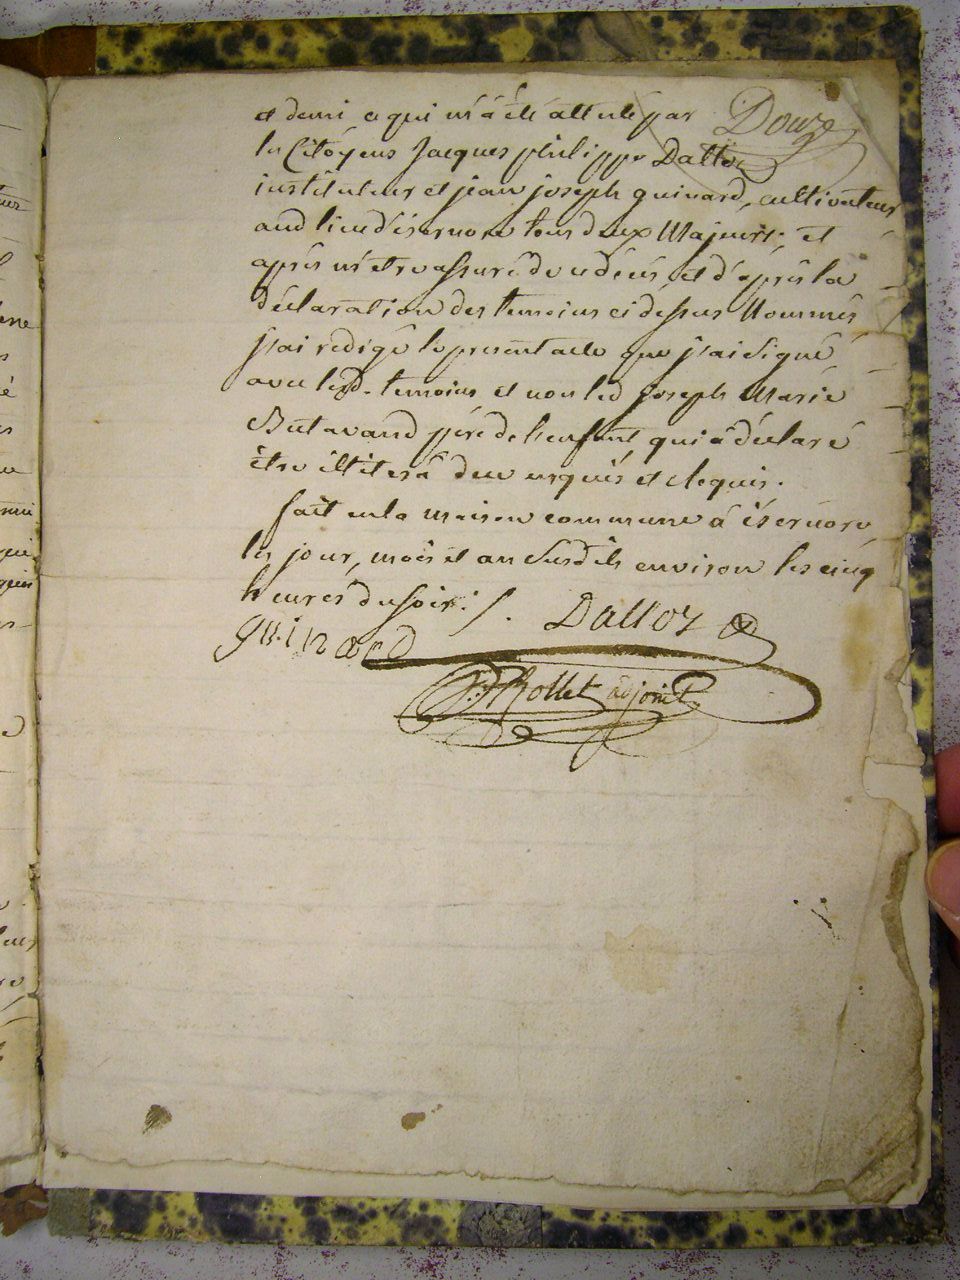 Douze
et demi ce qui m'a été attesté par
les Citoyens Jacques philippe Dalloz
instituteur et jean joseph guinard, cultivateur
aud lieu d'isernore tous deux Majeurs; et
après m'etre assuré du décés, et d'après la
déclaration des temoins ci dessus Nommés
j'ai rédigé le present acte que j'ai signé
avec lesd. temoins et non led joseph Marie
Buttavand père de l'enfant, qui a déclaré
être illiteré de ce enquis et requis.
fait en la maison commune à isernore,
les jour, mois et an susdits environ les cinq
heures du soir.
J. Dalloz
guinard
Rollet adjoint